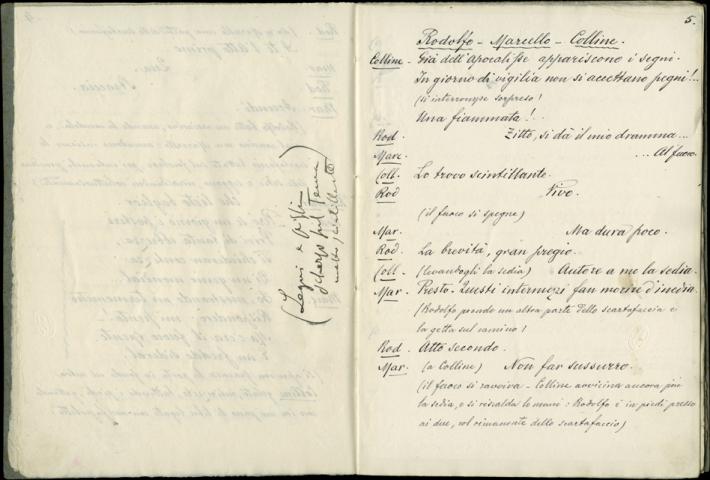 5.
Rodolfo - Marcello - Colline.
Colline - Già dell'Apocalisse appariscono i segni.
In giorno di vigilia non si accettano pegni!..
(si interrompe sorpreso!
Una fiammata!..
Rod. Zitto, si dà il mio dramma...
Marc. ... Al fuoco.
Coll. Lo trovo scintillante.
Rod Vivo.
(il fuoco si spegne)
Mar. Ma dura poco.
Rod. La brevità, gran pregio.
Coll. (levandogli la sedia) Autore a me la sedia.
Mar. Presto. Questi intermezzi fan morire d'inedia.
(Rodolfo prende un altra parte dello scartafaccio e
la getta sul camino!
Rod. Atto secondo.
Mar. (a Colline) Non far sussurro.
(il fuoco si ravviva - Colline avvicina ancora più
la sedia, e si riscalda le mani: Rodolfo è in piedi presso
ai due, col rimanente dello scartafaccio)
(Legni e
scherzo sul
molto